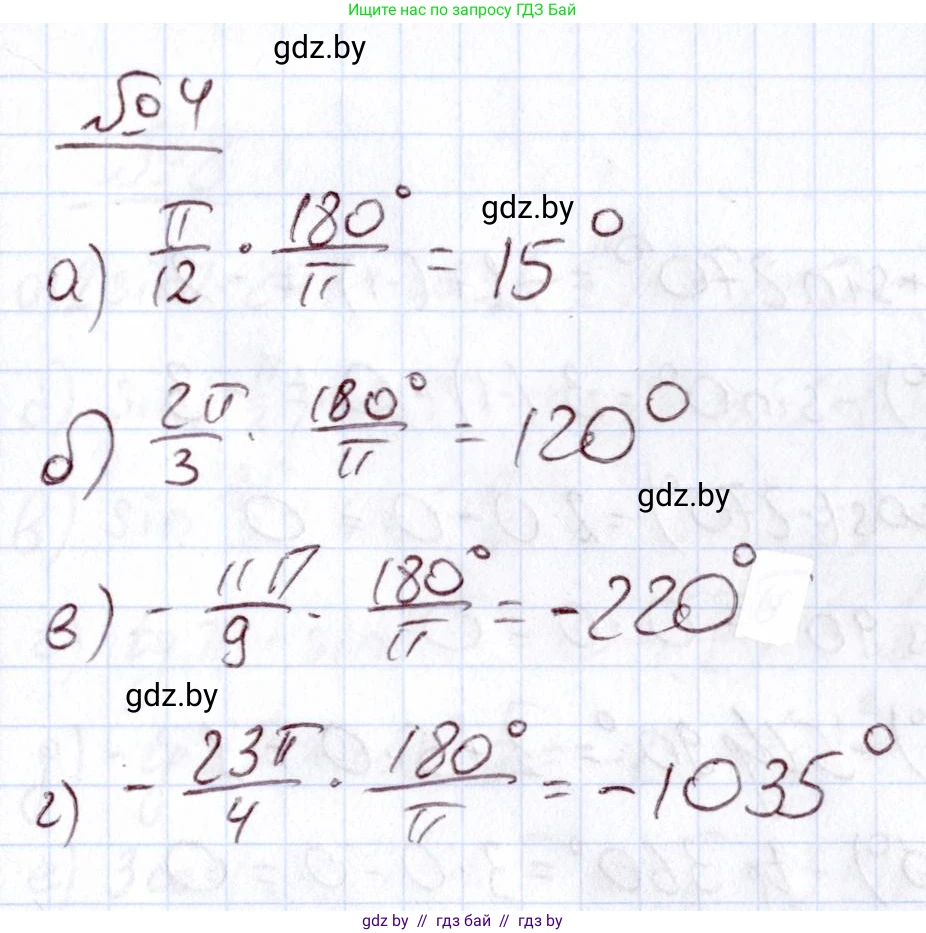 Ищите нас по запросу ГДЗ Бай
gdz.by
№ 4
а) π/12 · 180°/π = 15°
gdz.by
б) 2π/3 · 180°/π = 120°
gdz.by
в) - 11π/9 · 180°/π = -220°
gdz.by
г) - 23π/4 · 180°/π = -1035°
gdz by // гдз бай // гдз by